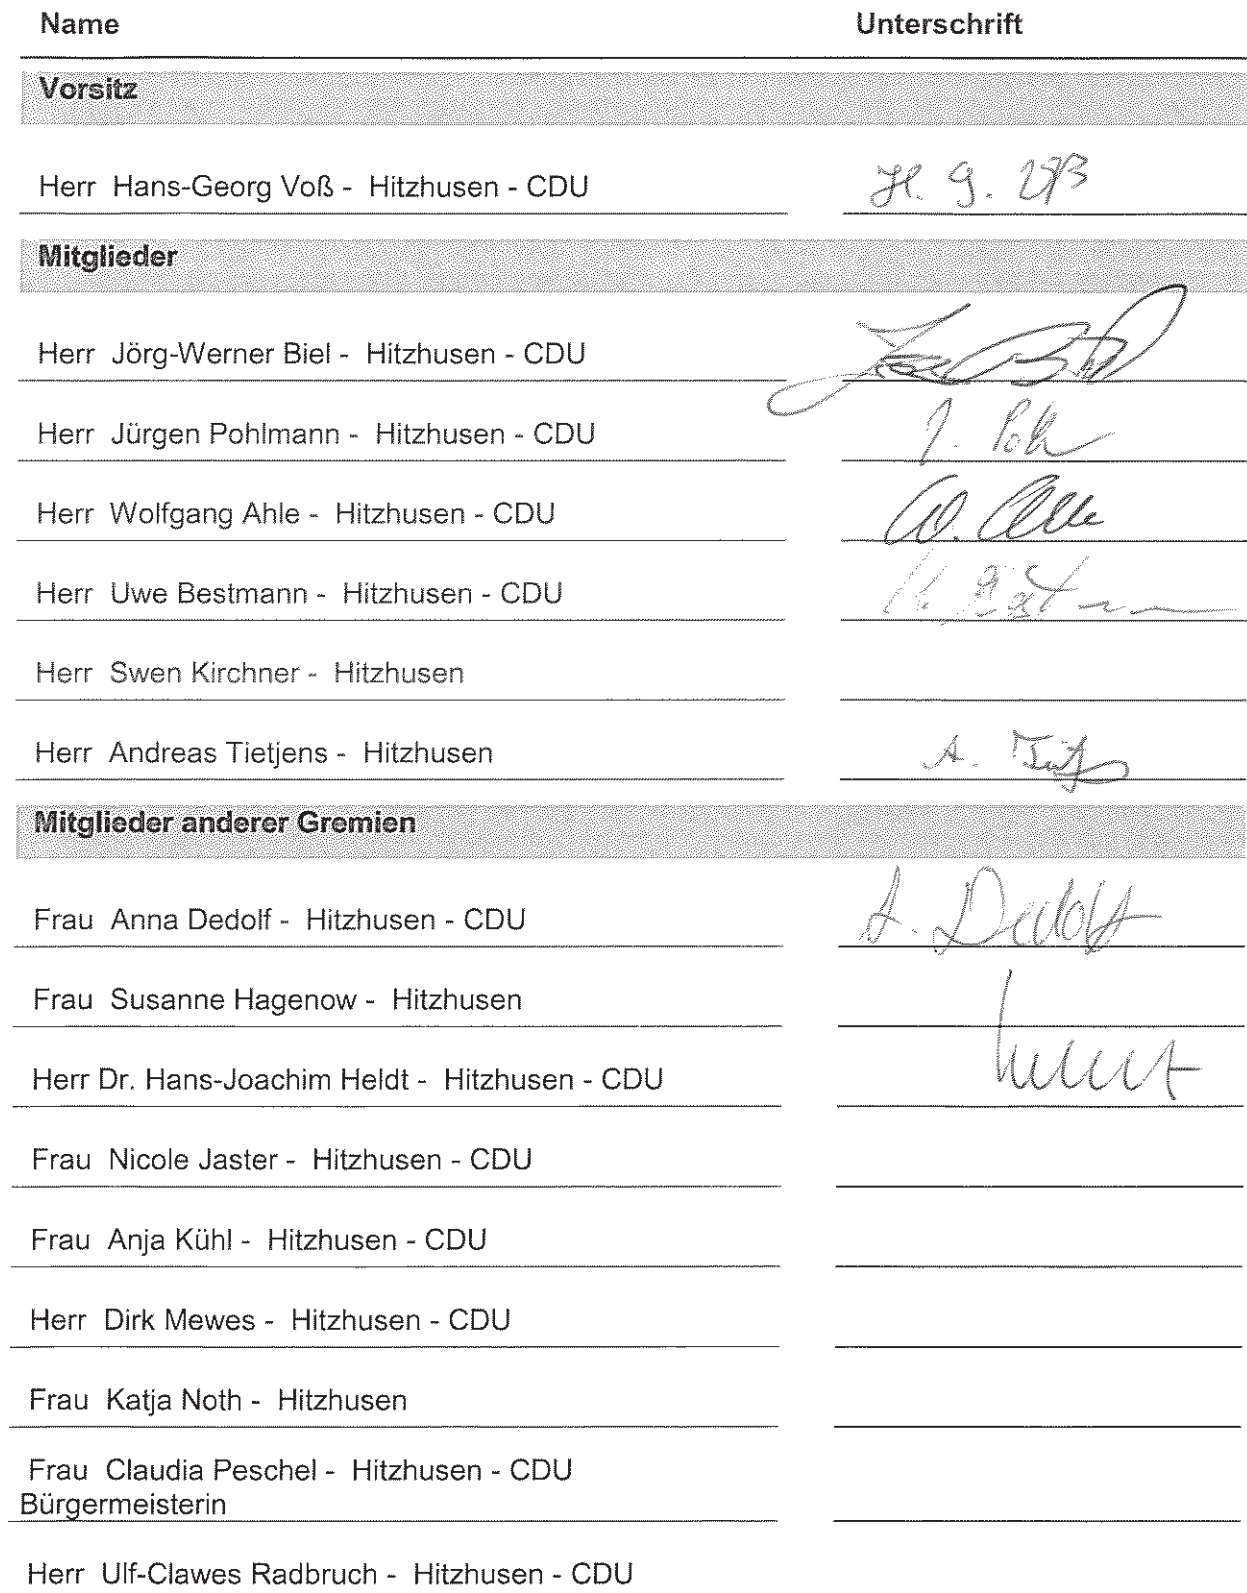 Name Unterschrift
Vorsitz
Herr Hans-Georg Voß - Hitzhusen - CDU H. G. Voß
Mitglieder
Herr Jörg-Werner Biel - Hitzhusen - CDU
Herr Jürgen Pohlmann - Hitzhusen - CDU J. Pohl
Herr Wolfgang Ahle - Hitzhusen - CDU W. Ahle
Herr Uwe Bestmann - Hitzhusen - CDU
Herr Swen Kirchner - Hitzhusen
Herr Andreas Tietjens - Hitzhusen A.
Mitglieder anderer Gremien
Frau Anna Dedolf - Hitzhusen - CDU A. Dedolf
Frau Susanne Hagenow - Hitzhusen
Herr Dr. Hans-Joachim Heldt - Hitzhusen - CDU
Frau Nicole Jaster - Hitzhusen - CDU
Frau Anja Kühl - Hitzhusen - CDU
Herr Dirk Mewes - Hitzhusen - CDU
Frau Katja Noth - Hitzhusen
Frau Claudia Peschel - Hitzhusen - CDU
Bürgermeisterin
Herr Ulf-Clawes Radbruch - Hitzhusen - CDU